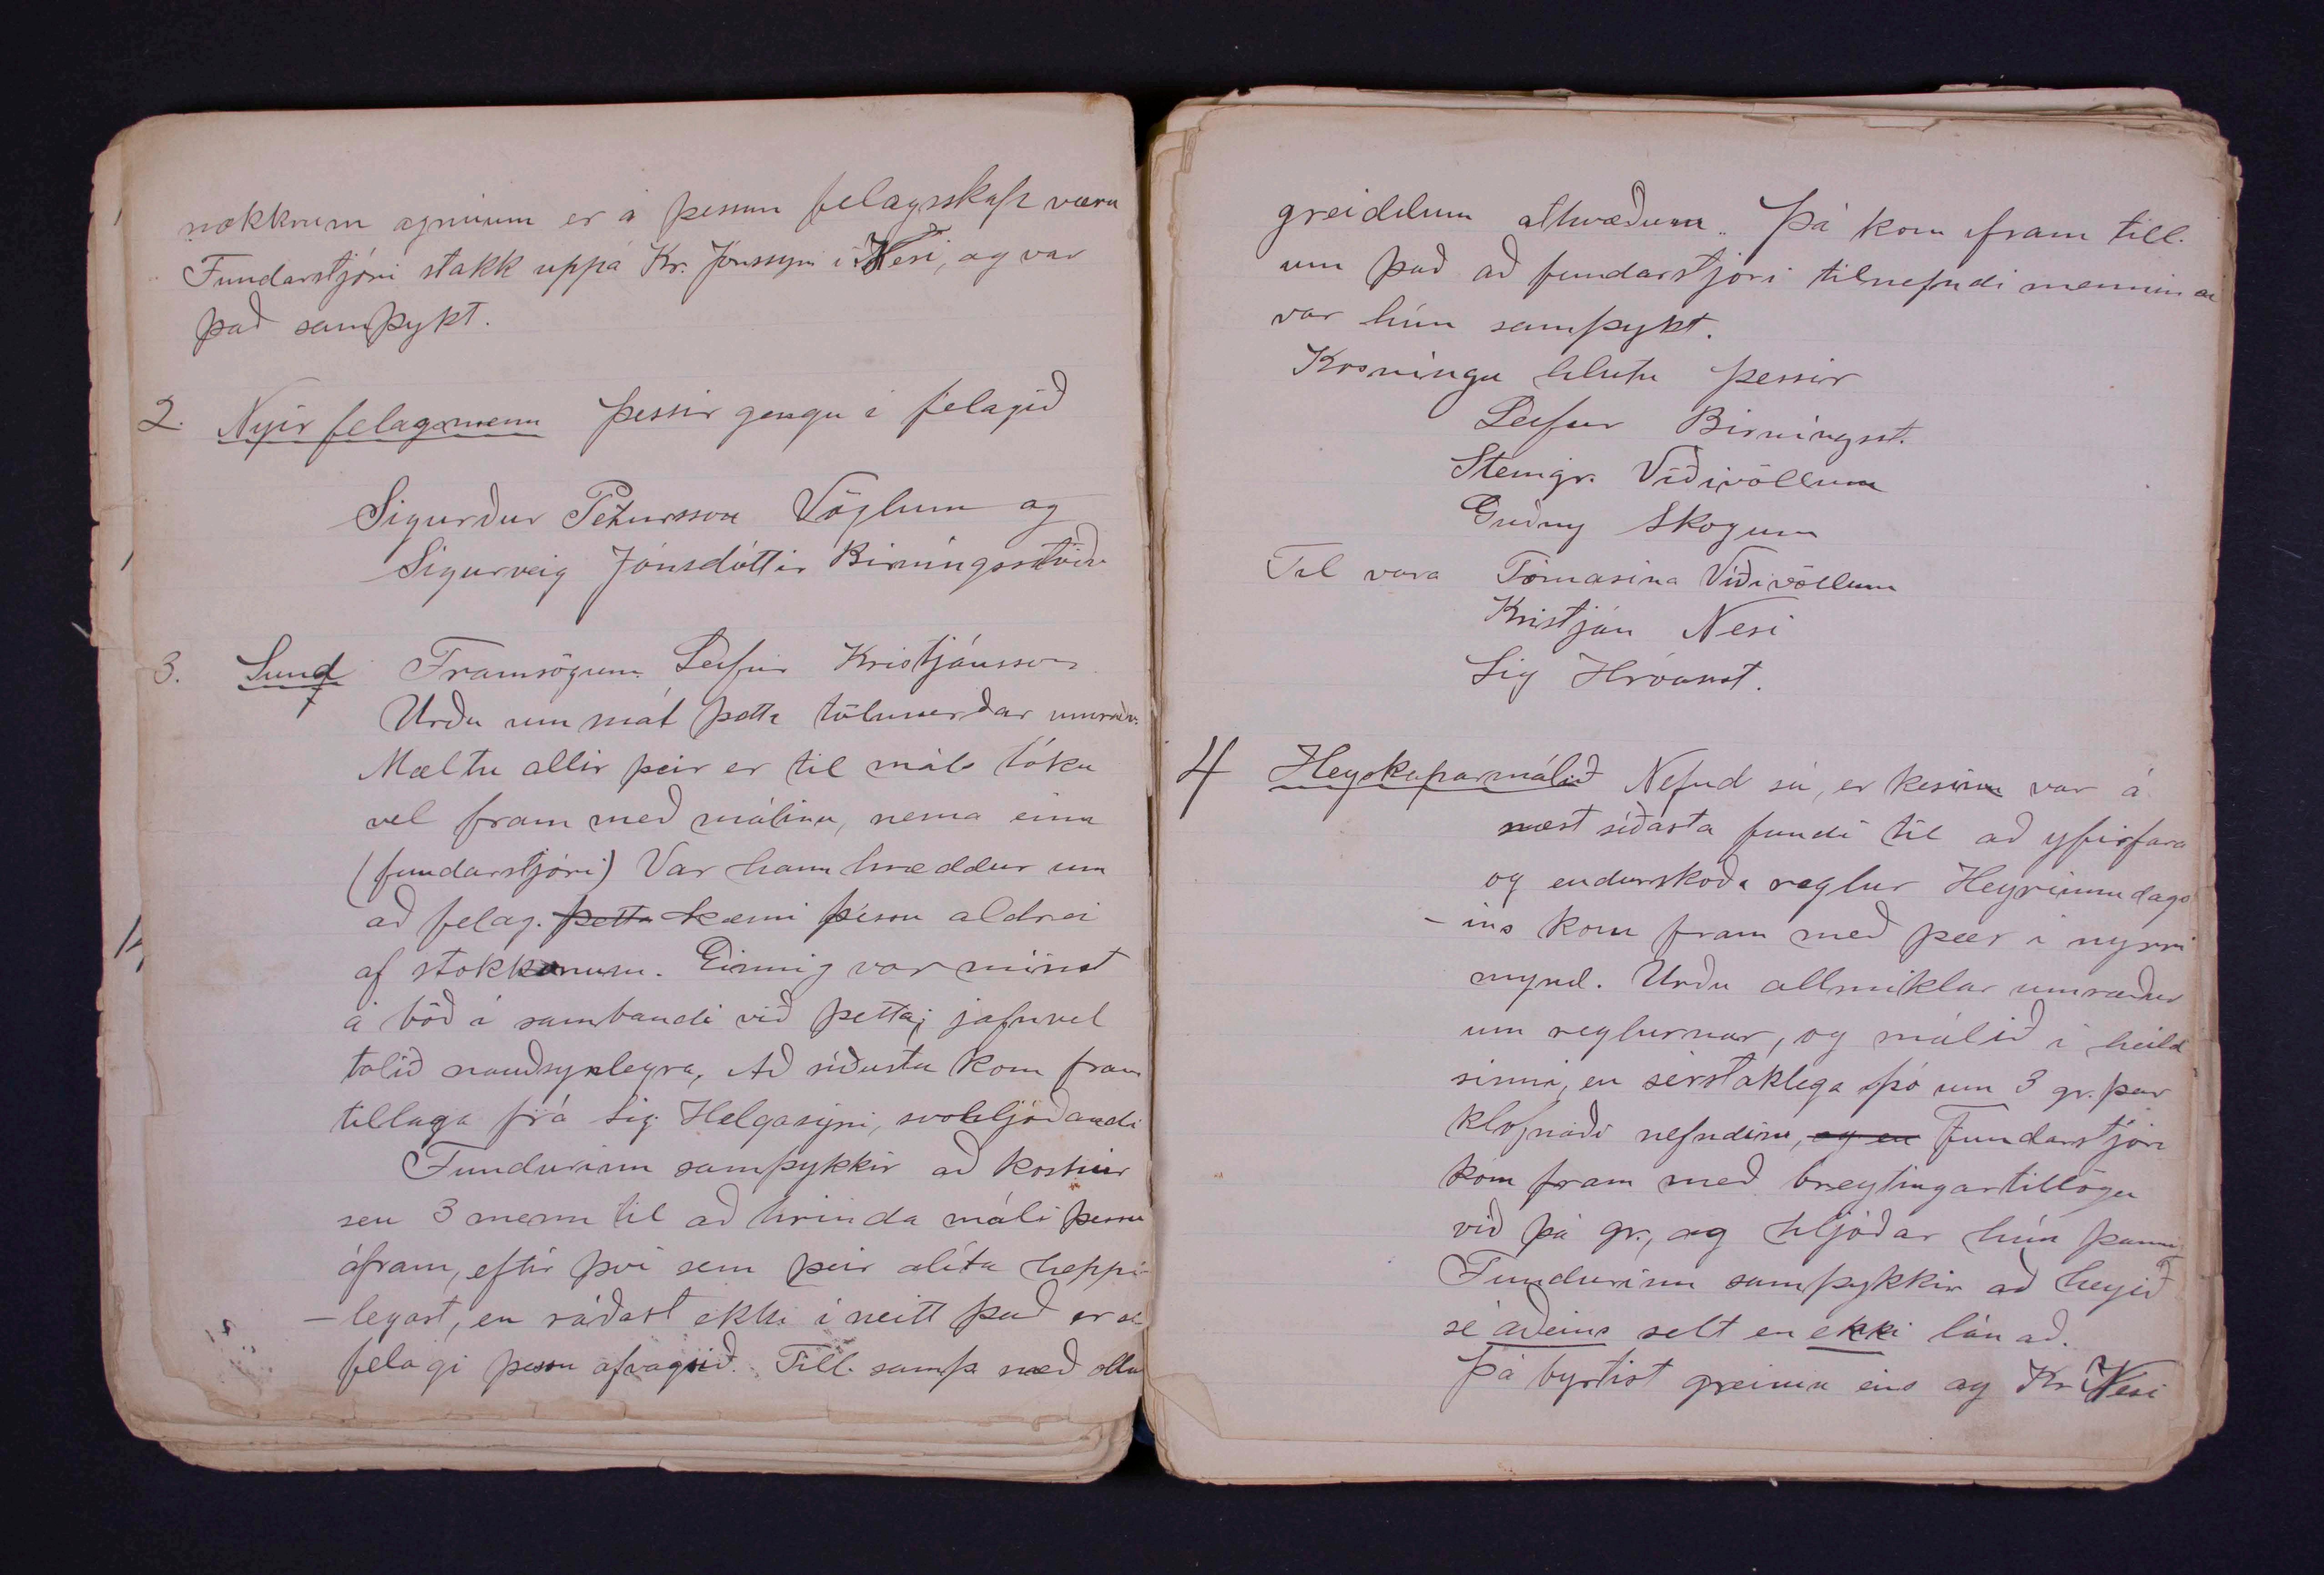 nokkrum agnúum er á þessum felagsskap væru
Fundarstjóri stakk uppá Kr. Jónssyni í Nesi, og var
það samþykt.
2. Nyir felagsmenn þessir gengu i felagið
Sigurður Petursson Vöglum og
Sigurveig Jónsdóttir Birningsstöðu
3. Sund Framsögum. Leifur Kristjánsson
Urðu um mál þetta tölurverðar umræðu.
Mæltu allir þeir er til máls tóku
vel fram með málinu, nema einn
(fundarstjóri) Var hann hræddur um
að felag. þetta kæmi þessu aldrei
af stokkonum. Einnig var minst
á böð i sambandi við þetta; jafnvel
talið nauðsynlegra, Að síðustu kom fram
tillaga frá Sig. Helgasyni, svohljóðandi
Fundurinn samþykkir að kostnir
seu 3 menn til að hrinda máli þessu
áfram, eftir því sem þeir alíta heppi-
-legast, en ráðast ekki í neitt það er
felagi þessu ofvagsið. Till. samþ með ollu
greiddum atkvæðum. Þá kom fram till.
um það að fundarstjóri tilnefndi mennina
var hún samþykt.
Kosningu hlutu þessir
Leifur Birningsst.
Steingr. Víðivöllum
Guðny Skogum
Til vara Tómasina Víðivöllum
Kristján Nesi
Sig Hróarst.
4 Heyskaparmálið Nefnd sú, er kosinn var á
næst síðasta fundi til að yfirfara
og endurskoða reglur Heyvinnudags
-ins kom fram með þær i nyrri
mynd. Urðu allmiklar umræður
um reglurnar, og málið i heild
sinni, en sérstaklega þó um 3 gr. þar
klofnaði nefndin, og en Fundarstjóri
kom fram með breytingartillögu
við þá gr., og hljóðar hún þanni
Fundurinn samþykkir að heyið
sé aðeins selt en ekki lánað.
Þá byrtist greinin eins og Kr. í Nesi